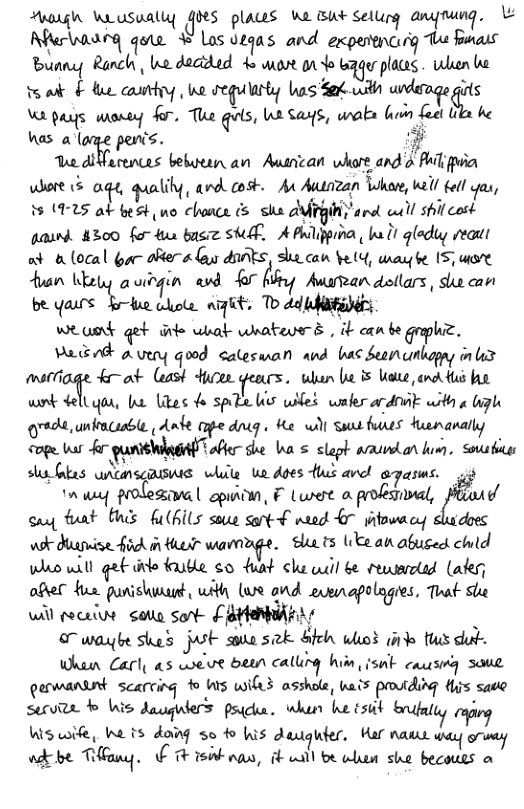 though he usually goes places he isnt selling anything.
After having gone to Las Vegas and experiencing the famous
Bunny Ranch, he decided to move on to bigger places. When he
is out of the country, he regularly has sex with underage girls
he pays money for. The girls, he says, make him feel like he
has a large penis.
The differences between an American whore and a Philippina
whore is age, quality, and cost. An American whore, he'll tell you,
is 19-25 at best, no chance is she a virgin, and will still cost
around $300 for the basic stuff. A Philippina, he'll gladly recall
at a local bar after a few drinks, she can be 14, maybe 15, more
than likely a virgin and for fifty American dollars, she can
be yours for the whole night. To do whatever.
we wont get into what whatever is, it can be graphic.
He is not a very good salesman and has been unhappy in his
marriage for at least three years. When he is home, and this he
wont tell you, he likes to spike his wife's water or drink with a high
grade, untraceable, date rape drug. He will sometimes then anally
rape her for punishment after she has slept around on him. Sometimes
she fakes unconsciousness while he does this and orgasms.
In my professional opinion, if I were a professional, I would
say that this fulfills some sort of need for intamacy she does
not otherwise find in their marriage. She is like an abused child
who will get into trouble so that she will be rewarded later,
after the punishment, with love and even apologies. That she
will receive some sort of attention
or maybe she's just some sick bitch who's into this shit.
When Carl, as we've been calling him, isnt causing some
permanent scarring to his wife's asshole, he is providing this same
service to his daughter's psyche. When he isnt brutally raping
his wife, he is doing so to his daughter. Her name may or may
not be Tiffany. If it isnt now, it will be when she becomes a